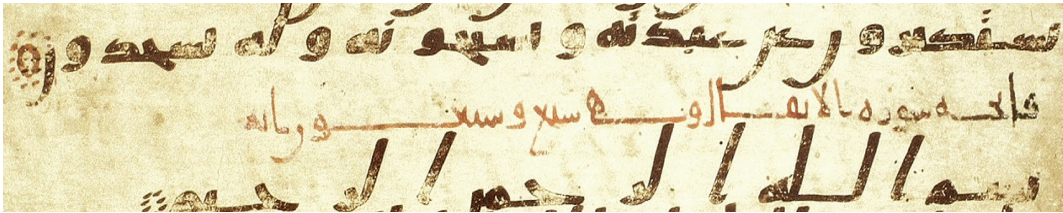 يستكبرون عن عبدته و يسبحونه و له يسجدون
فاتحه سوره الانفال و هي سبع و سبعون ايه
بسم الله الرحمن الرحيم